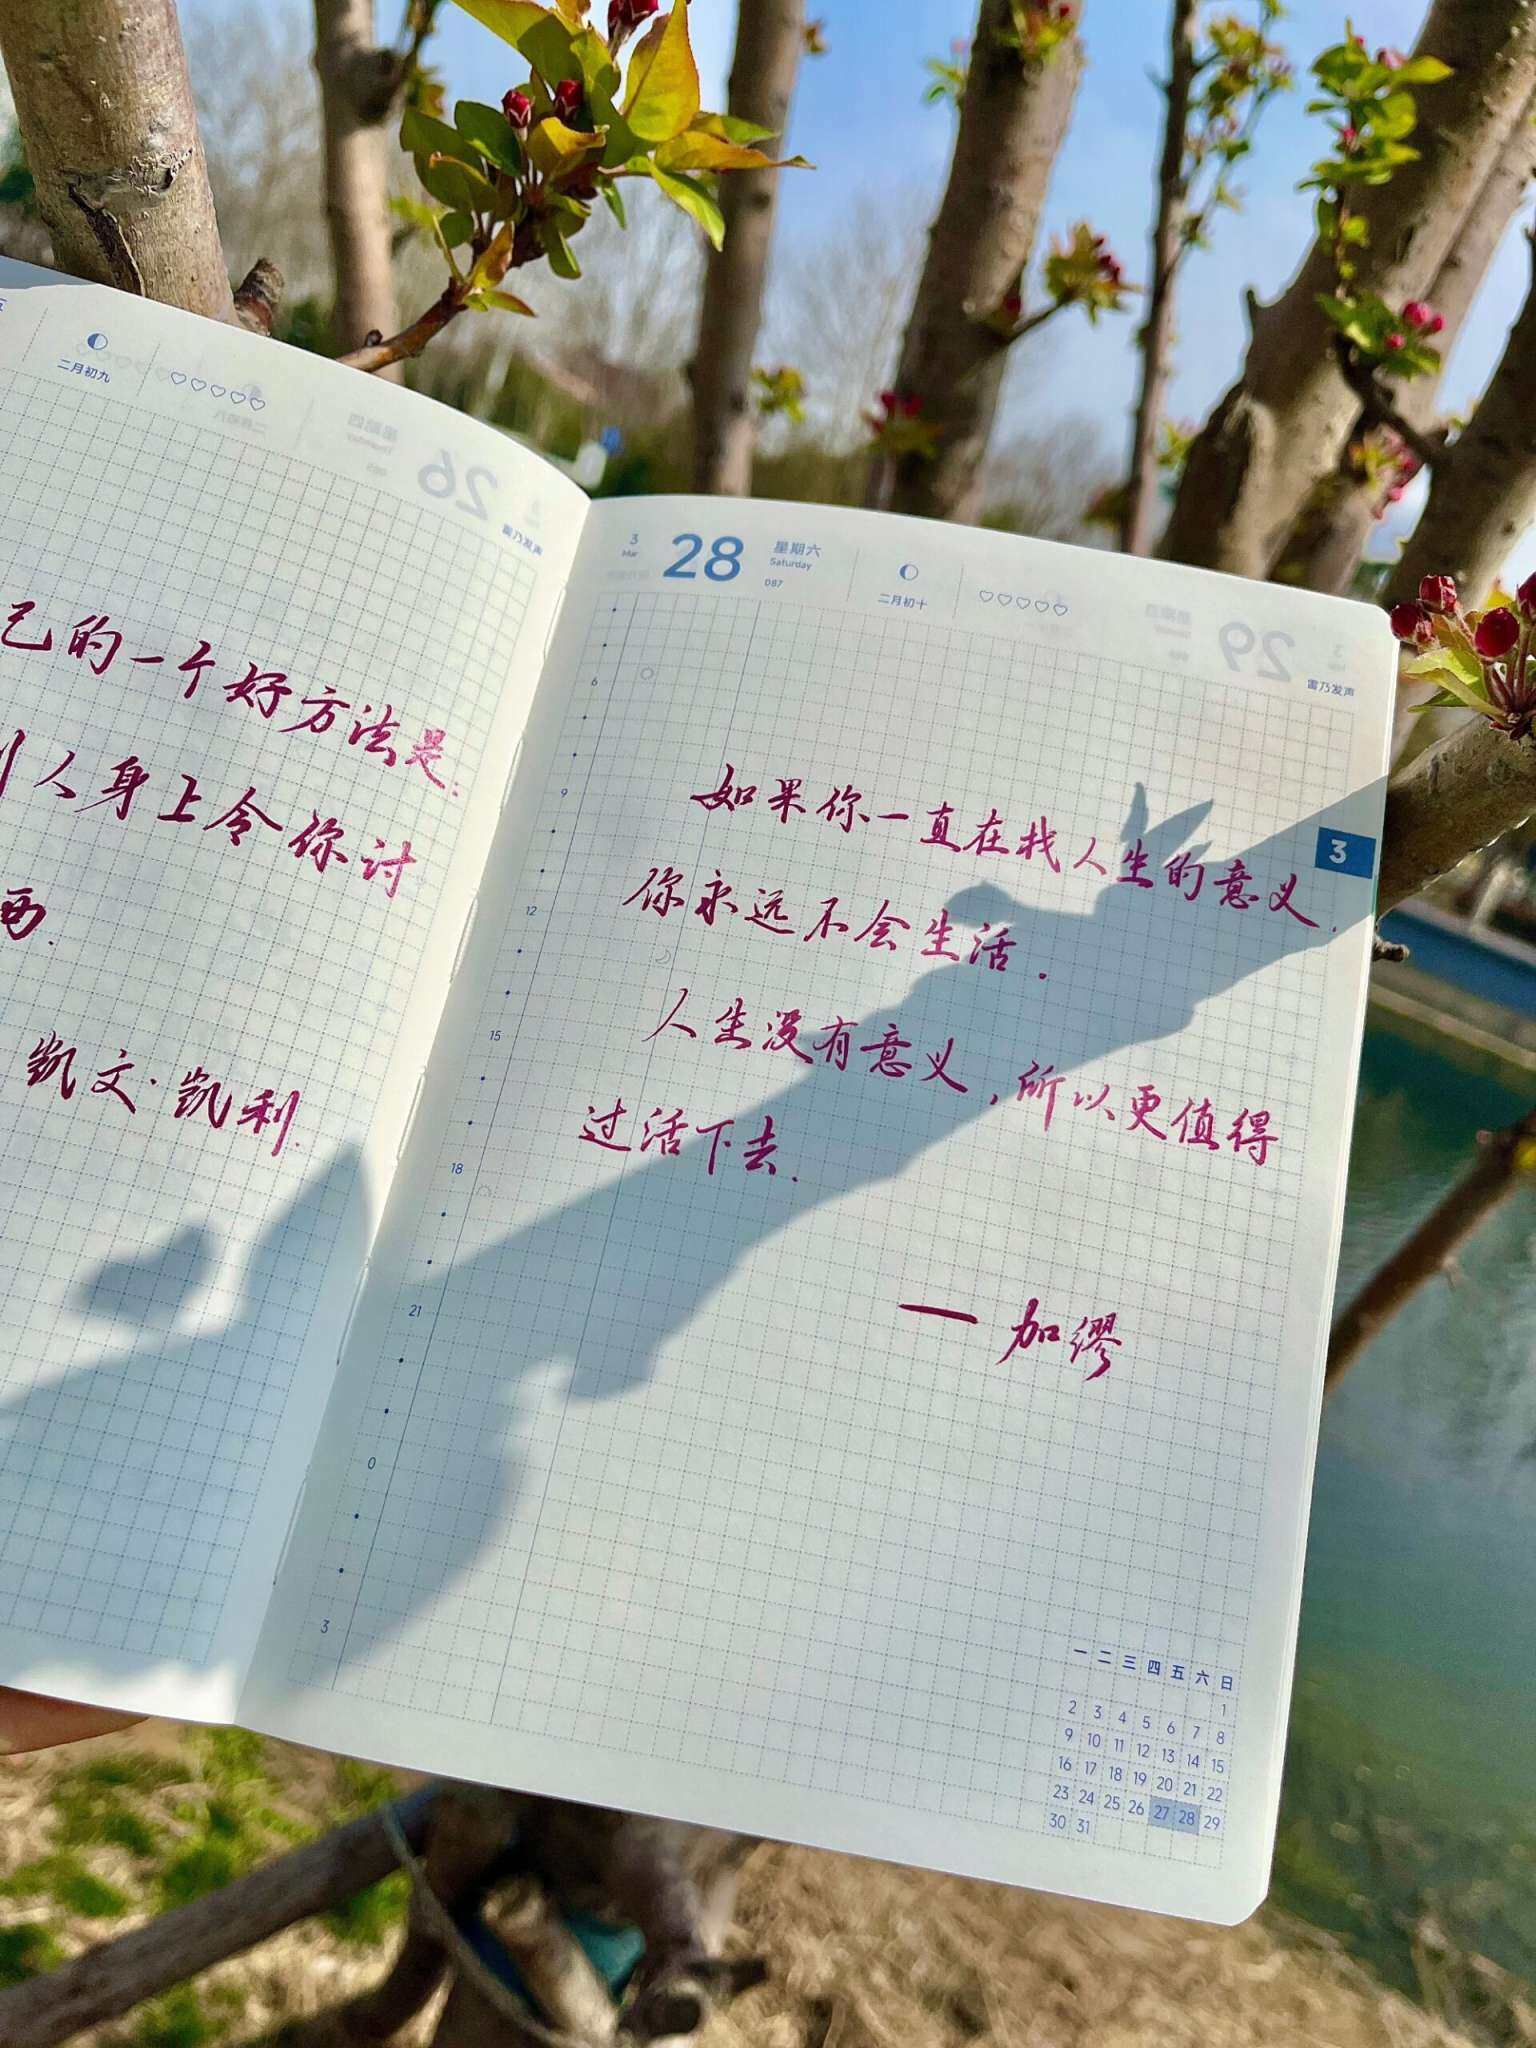 二月初九
26
雷乃发声
己的一个好方法是:
人身上令你讨
西.
凯文·凯利.
3
Mar
28
星期六
Saturday
087
二月初十
29
雷乃发声
3
如果你一直在找人生的意义.
你永远不会生活.
人生没有意义,所以更值得
过活下去.
— 加缪
6
9
12
15
18
21
0
3
一 二 三 四 五 六 日
1
2 3 4 5 6 7 8
9 10 11 12 13 14 15
16 17 18 19 20 21 22
23 24 25 26 27 28 29
30 31